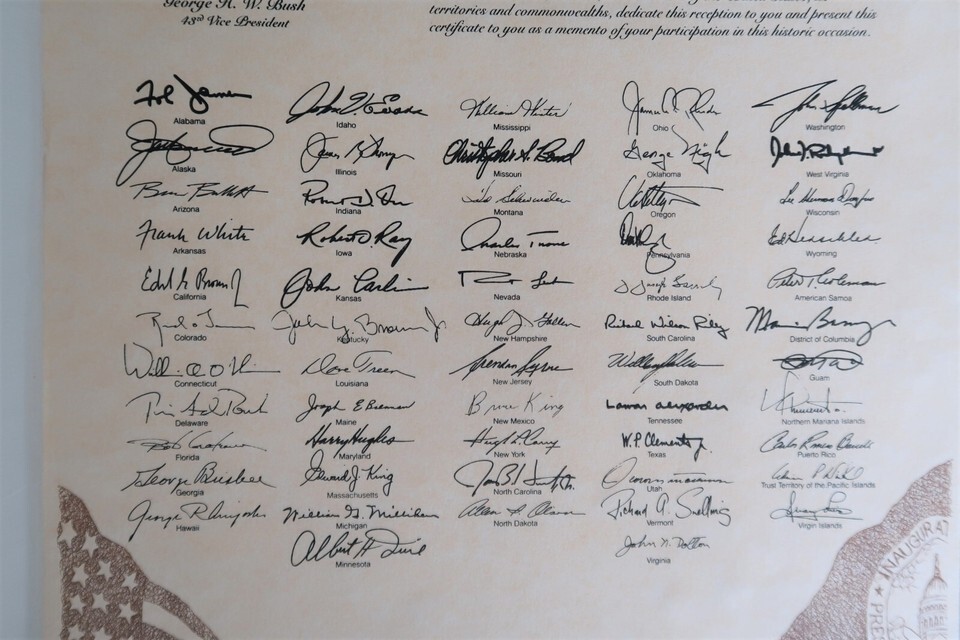 George H. W. Bush
43rd Vice President
territories and commonwealths, dedicate this reception to you and present this
certificate to you as a memento of your participation in this historic occasion.
Fob James
Alabama
John V. Evans
Idaho
William Winter
Mississippi
James A. Rhodes
Ohio
John Spellman
Washington
Alaska
James R. Thompson
Illinois
Christopher S. Bond
Missouri
George Nigh
Oklahoma
West Virginia
Bruce Babbitt
Arizona
Robert D. Orr
Indiana
Ted Schwinden
Montana
Oregon
Lee Sherman Dreyfus
Wisconsin
Frank White
Arkansas
Robert D Ray
Iowa
Charles Thone
Nebraska
Pennsylvania
Ed Herschler
Wyoming
Edmund G. Brown Jr
California
John Carlin
Kansas
Nevada
J Joseph Garrahy
Rhode Island
Peter T. Coleman
American Samoa
Colorado
John Y. Brown Jr.
Kentucky
Hugh J. Gallen
New Hampshire
Richard Wilson Riley
South Carolina
Marion Barry
District of Columbia
Connecticut
Dave Treen
Louisiana
Brendan Byrne
New Jersey
South Dakota
Guam
Delaware
Joseph E Brennan
Maine
Bruce King
New Mexico
Lamar Alexander
Tennessee
Northern Mariana Islands
Bob Graham
Florida
Harry Hughes
Maryland
Hugh L. Carey
New York
W.P. Clements Jr.
Texas
Puerto Rico
George Busbee
Georgia
Edward J. King
Massachusetts
North Carolina
Utah
Trust Territory of the Pacific Islands
George R Ariyoshi
Hawaii
William G. Milliken
Michigan
Allen I. Olson
North Dakota
Richard A. Snelling
Vermont
Virgin Islands
Albert H Quie
Minnesota
John N. Dalton
Virginia